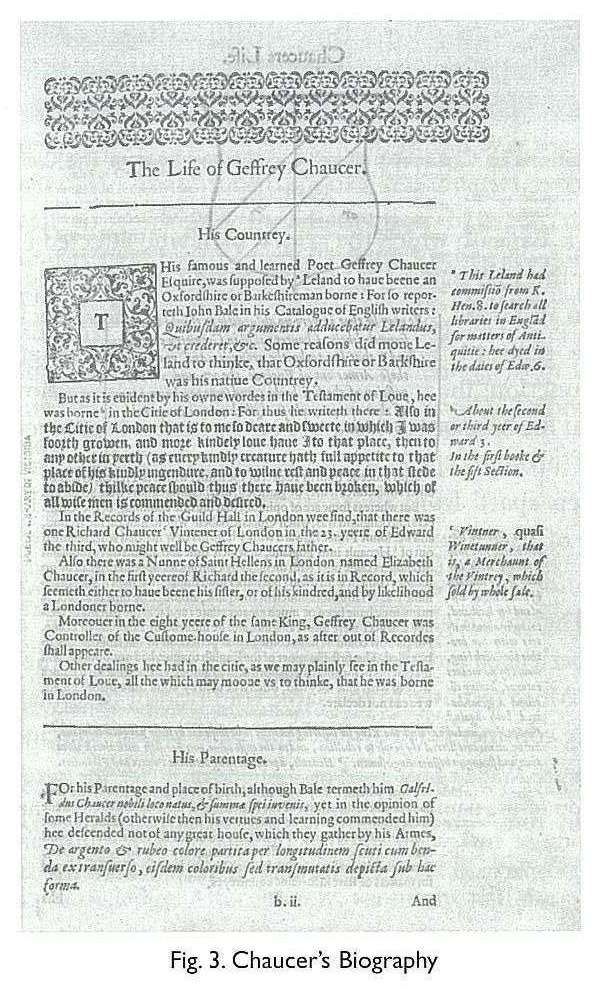 The Life of Geffrey Chaucer.
His Countrey.
THis famous and learned Poet Geffrey Chaucer
Esquire, was supposed by Leland to haue beene an
Oxfordshire or Barkeshireman borne: For so repor-
teth Iohn Bale in his Catalogue of English writers:
Quibusdam argumentis adducebatur Lelandus,
vt crederet, &c. Some reasons did moue Le-
land to thinke, that Oxfordshire or Barkshire
was his natiue Countrey.
But as it is euident by his owne wordes in the Testament of Loue, hee
was borne in the Citie of London: For thus he writeth there: Also in
the Citie of London that is to me so deare and sweete in which I was
foorth growen, and more kindely loue haue I to that place, then to
any other in yerth (as euery kindly creature hath full appetite to that
place of his kindly ingendure, and to wilne rest and peace in that stede
to abide) thilke peace should thus there haue been broken, which of
all wise men is commended and desired.
In the Records of the Guild Hall in London wee find, that there was
one Richard Chaucer Vintener of London in the 23. yeere of Edward
the third, who might well be Geffrey Chaucers father.
Also there was a Nunne of Saint Hellens in London named Elizabeth
Chaucer, in the first yeere of Richard the second, as it is in Record, which
seemeth either to haue beene his sister, or of his kindred, and by likelihood
a Londoner borne.
Moreouer in the eight yeere of the same King, Geffrey Chaucer was
Controller of the Custome-house in London, as after out of Recordes
shall appeare.
Other dealings hee had in the citie, as we may plainly see in the Testa-
ment of Loue, all the which may mooue vs to thinke, that he was borne
in London.
This Leland had
commissiō from K.
Hen. 8. to search all
libraries in Englād
for matters of Anti-
quitie: hee dyed in
the daies of Edw. 6.
About the second
or third yeer of Ed-
ward 3.
In the first booke &
the fift Section.
Vintner, quasi
Winetunner, that
is, a Merchaunt of
the Vintrey, which
sold by whole sale.
His Parentage.
FOr his Parentage and place of birth, although Bale termeth him Galfri-
dus Chaucer nobili loco natus, & summæ spei iuvenis, yet in the opinion of
some Heralds (otherwise then his vertues and learning commended him)
hee descended not of any great house, which they gather by his Armes,
De argento & rubeo colore partita per longitudinem scuti cum ben-
da ex transuerso, eisdem coloribus sed transmutatis depicta sub hac
forma.
b. ii. And
Fig. 3. Chaucer's Biography